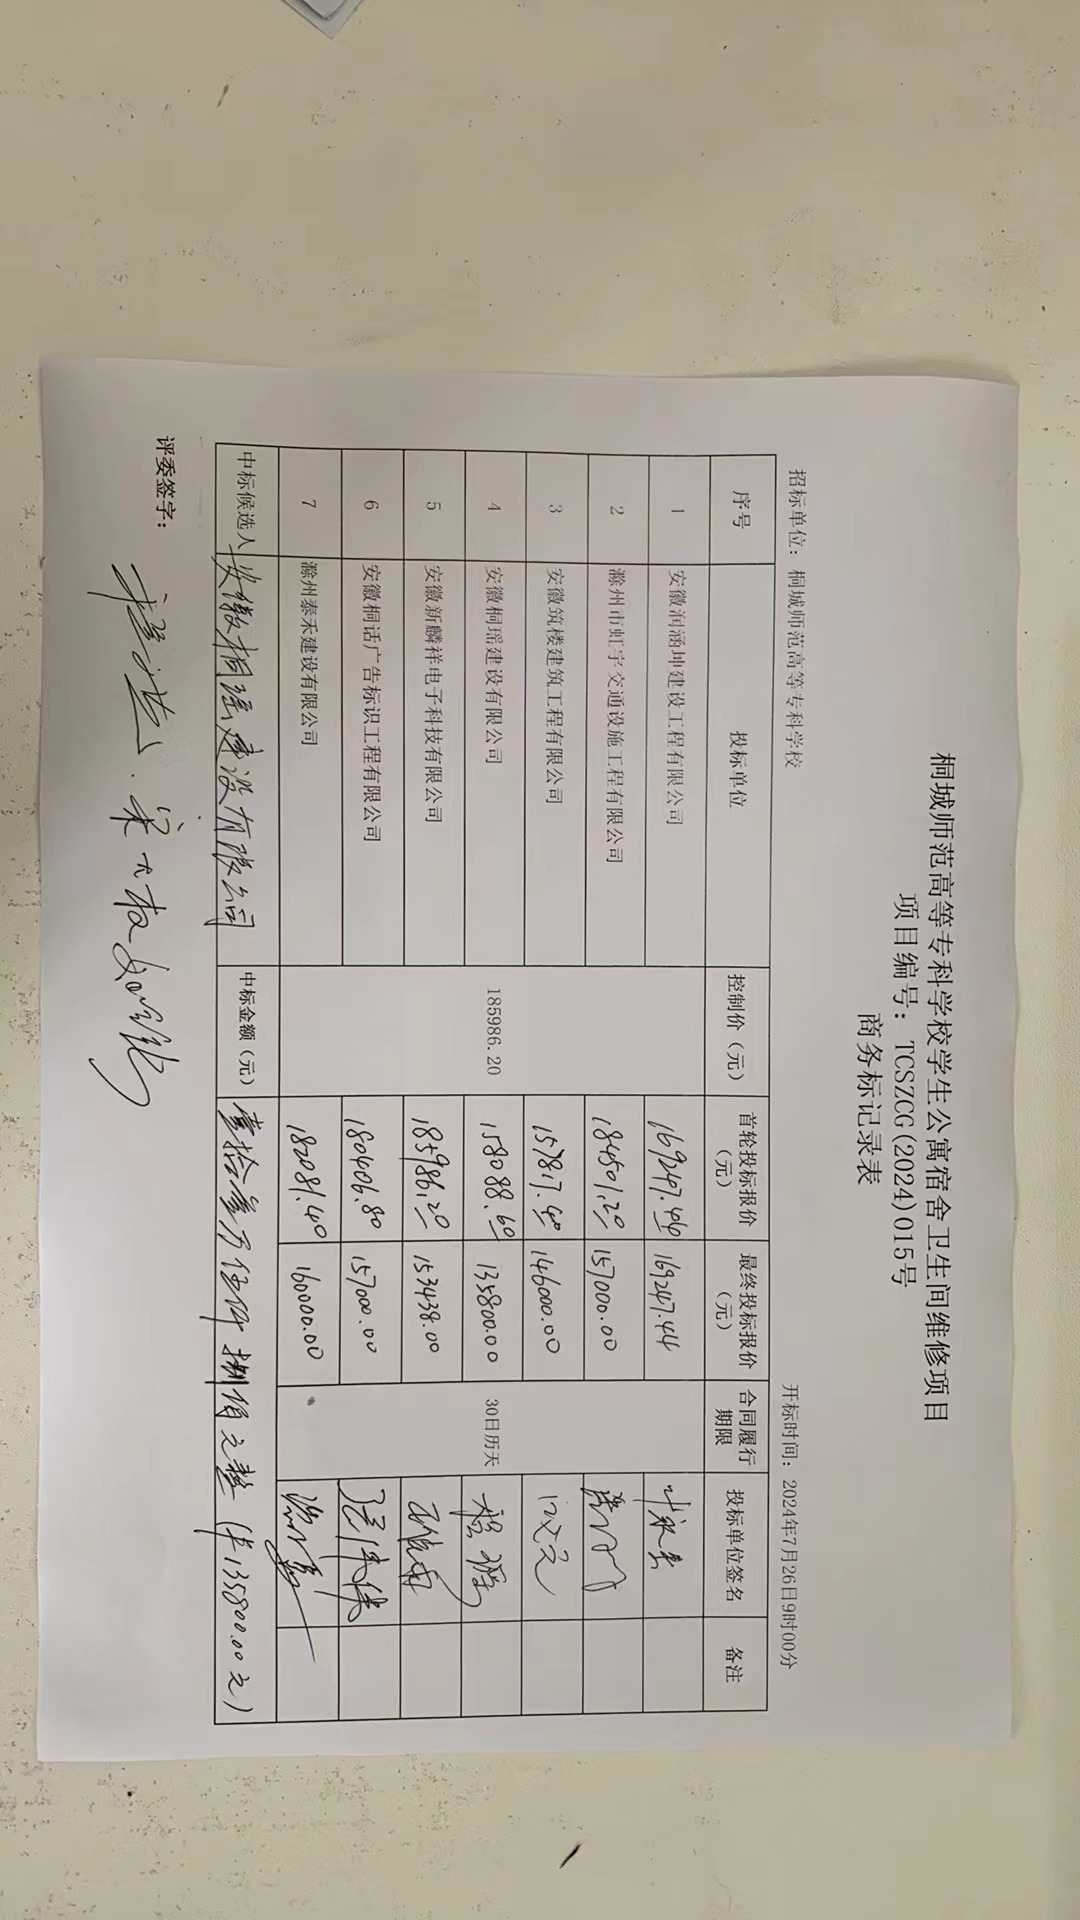 桐城师范高等专科学校学生公寓宿舍卫生间维修项目
项目编号：TCSZCG(2024)015号
商务标记录表
招标单位：桐城师范高等专科学校 开标时间：2024年7月26日9时00分
序号 投标单位 控制价（元） 首轮投标报价（元） 最终投标报价（元） 合同履行期限 投标单位签名 备注
1 安徽润涵坤建设工程有限公司 169247.44 169247.44
2 滁州市虹宇交通设施工程有限公司 184501.20 157000.00
3 安徽筑楼建筑工程有限公司 157817.40 146000.00
4 安徽桐瑶建设有限公司 185986.20 158088.60 135800.00 30日历天 程瑶
5 安徽新麟祥电子科技有限公司 185986.20 153438.00
6 安徽桐话广告标识工程有限公司 180406.80 157000.00
7 滁州泰禾建设有限公司 182081.40 160000.00
中标候选人 安徽桐瑶建设有限公司 中标金额（元） 壹拾叁万伍仟捌佰元整（¥135800.00元）
评委签字：